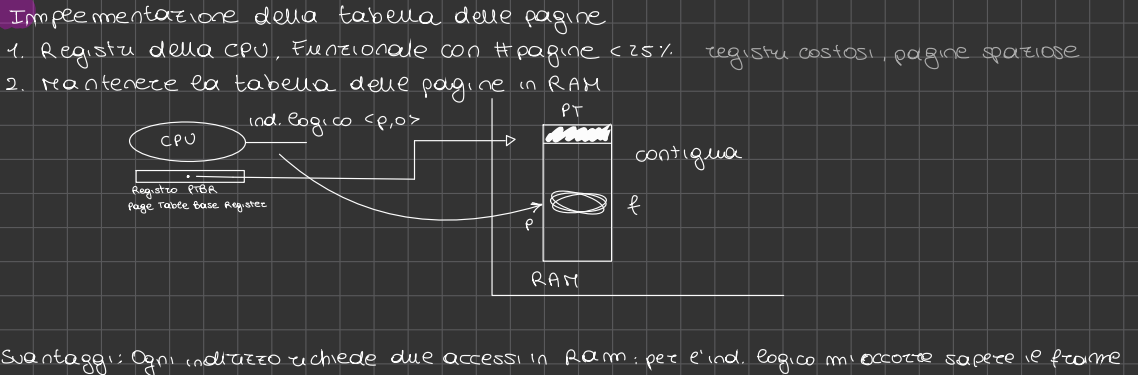 Implementazione della tabella delle pagine
1. Registri della CPU, Funzionale con #pagine < 25% registri costosi, pagine spaziose
2. Mantenere la tabella delle pagine in RAM
PT
ind. logico <p,o>
CPU
contigua
Registro PTBR
Page Table Base Register
f
p
RAM
Svantaggi: Ogni indirizzo richiede due accessi in Ram: per l'ind. logico mi occorre sapere il frame